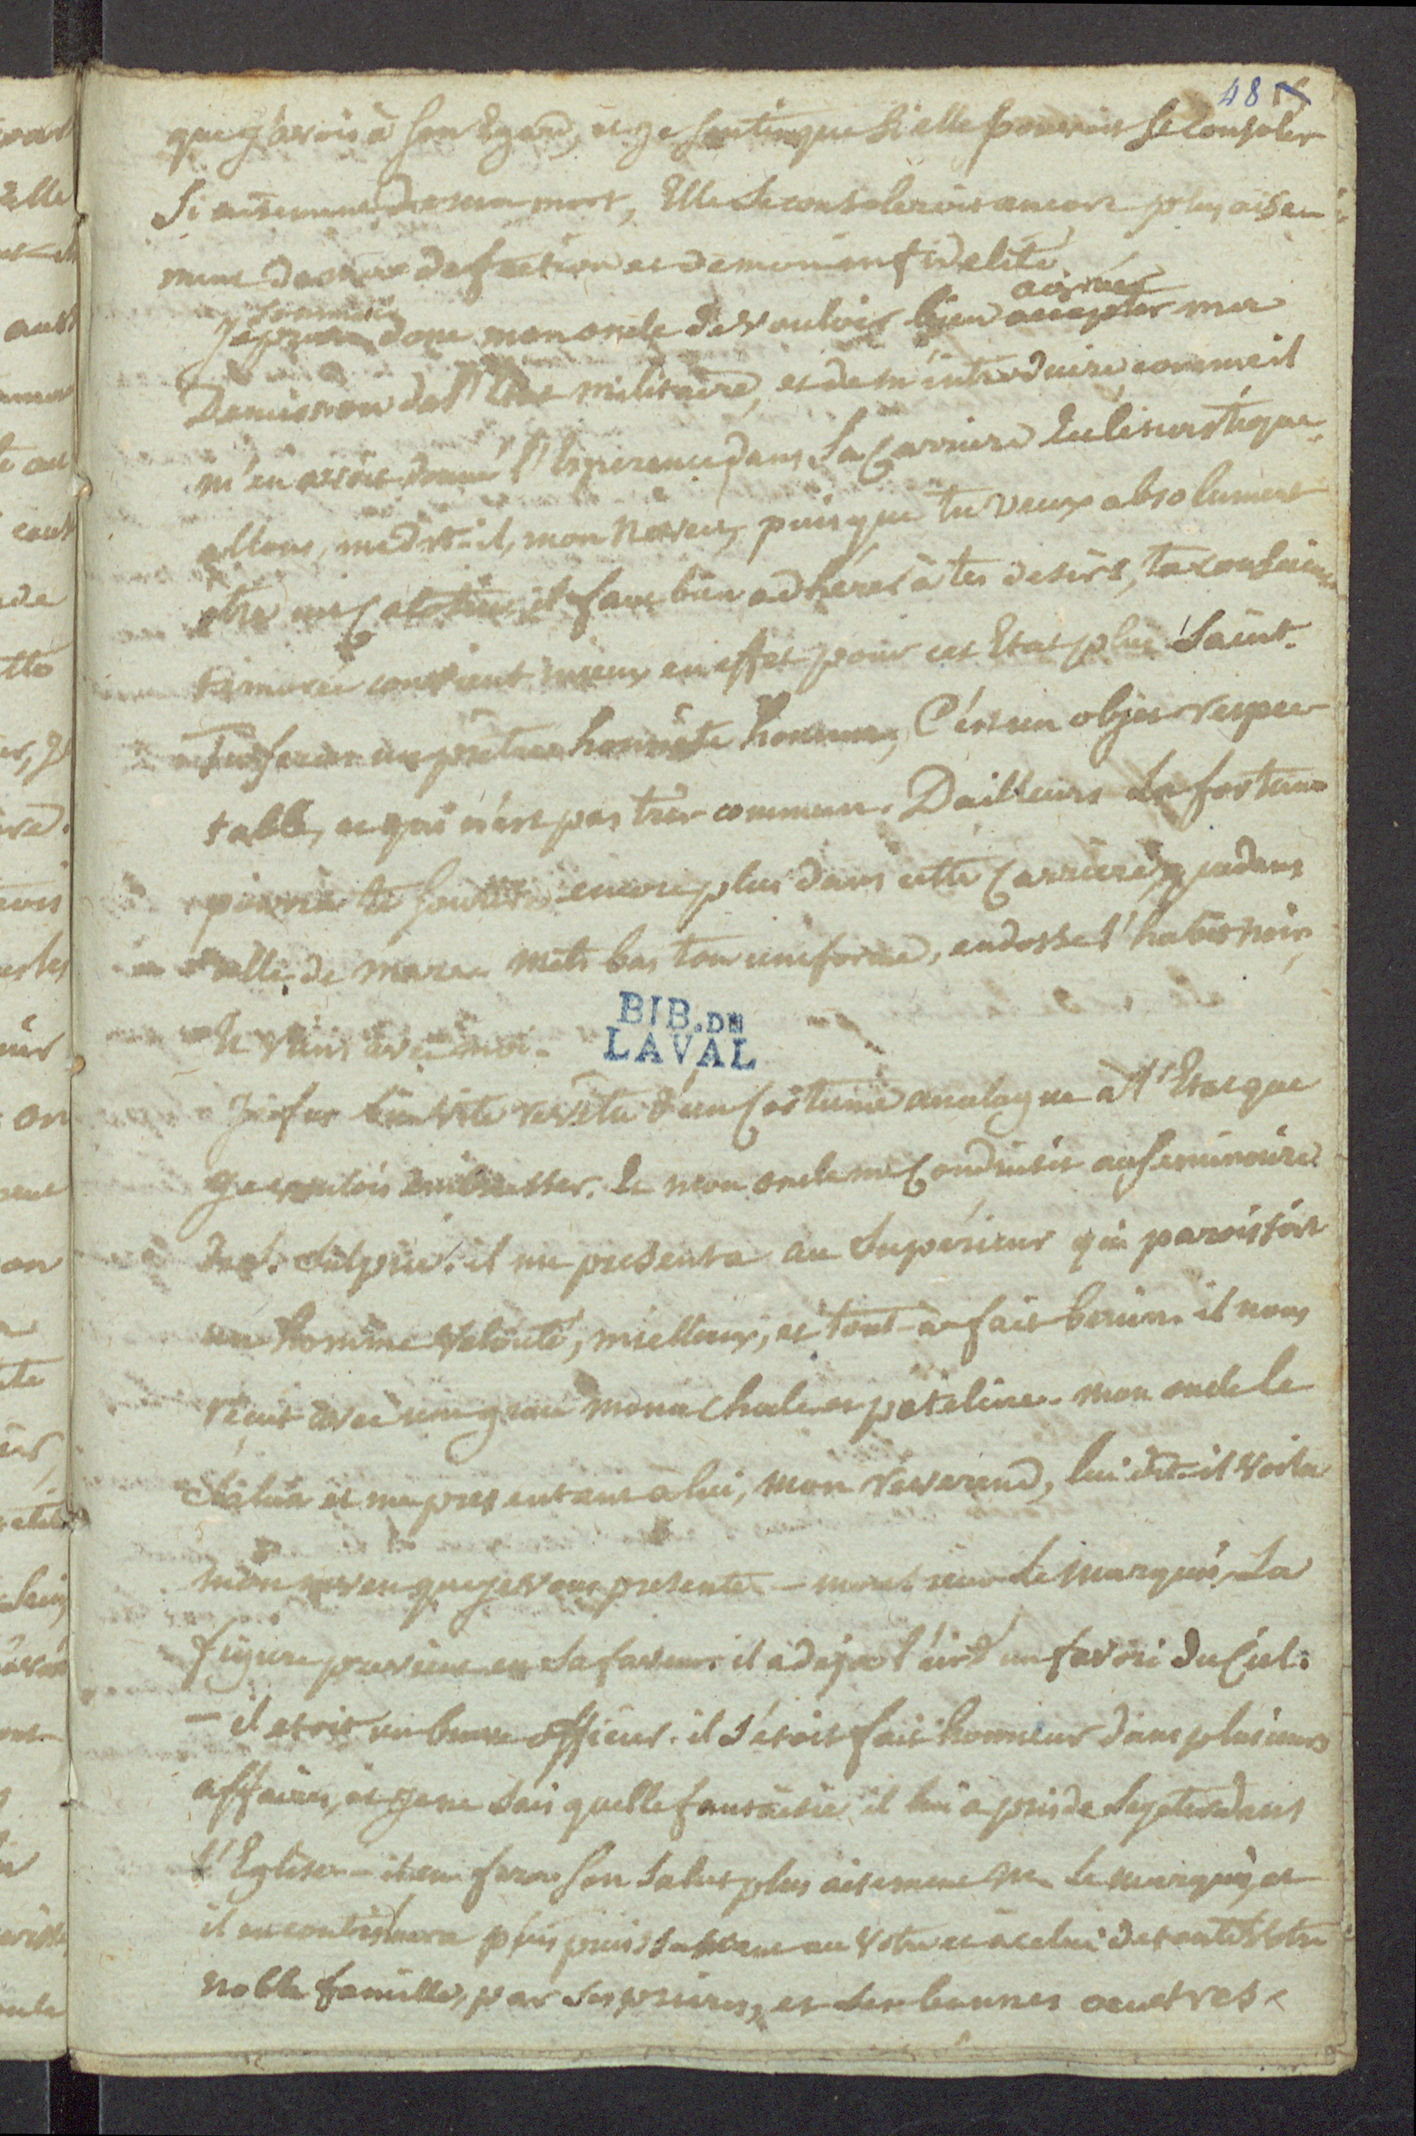 48
que j'avois à son Egard, et je sentis que si elle pouvoit se consoler
Si aisement de ma mort, Elle se consoleroit encore plus aisé-
ment de ma defection et de mon infidelité
agréer
Je priai donc mon oncle de vouloir bien accepter ma
Demission de l'Etat militaire, et de m'introduire comme il
m'en avoit donné l'Esperence dans la Carriere Eclesiastique.
allons, me dit-il, mon Neveu, puisque tu veux absolument
être un Calotin, il faut bien adhérer à tes desirs, ta conscience
timorée convient mieux en effet pour cet Etat plus Saint.
Tu seras un prêtre honnête homme, C'est un objet respec-
table, et qui n'est pas très commun. Dailleurs la fortune
pourra te sourire encore plus dans cette Carriere que dans
celle de mars. Mets bas ton uniforme, endosse l'habit noir,
Et viens avec moi.
BIB. DE
LAVAL
Je fus bien vite revêtu d'un Costume analogue à l'Etat que
Je voulois embrasser. Et mon oncle me Conduisit au Seminaire
de S. Sulpice. il me presenta au Supérieur qui paroissoit
un homme velouté, mielleux, et tout-à-fait benin. il nous
reçut avec une grace monachale et pateline. mon oncle le
salua et me presentant a lui, mon reverend, lui dit-il voila
mon neveu que je vous presente — monsieur Le Marquis, La
figure previent en sa faveur. il a déja l'air d'un favori du Ciel.
— il etoit un brave officier. il s'étoit fait honneur dans plusieurs
affaires, et je ne sais quelle fantaisie il lui a pris de se jetter dans
l'Eglise — il en fera son salut plus aisement M. Le marquis, et
il en contribuera plus puissamment au votre et à celui de toute votre
Noble famille, par ses prieres, et ses bonnes oeuvres.